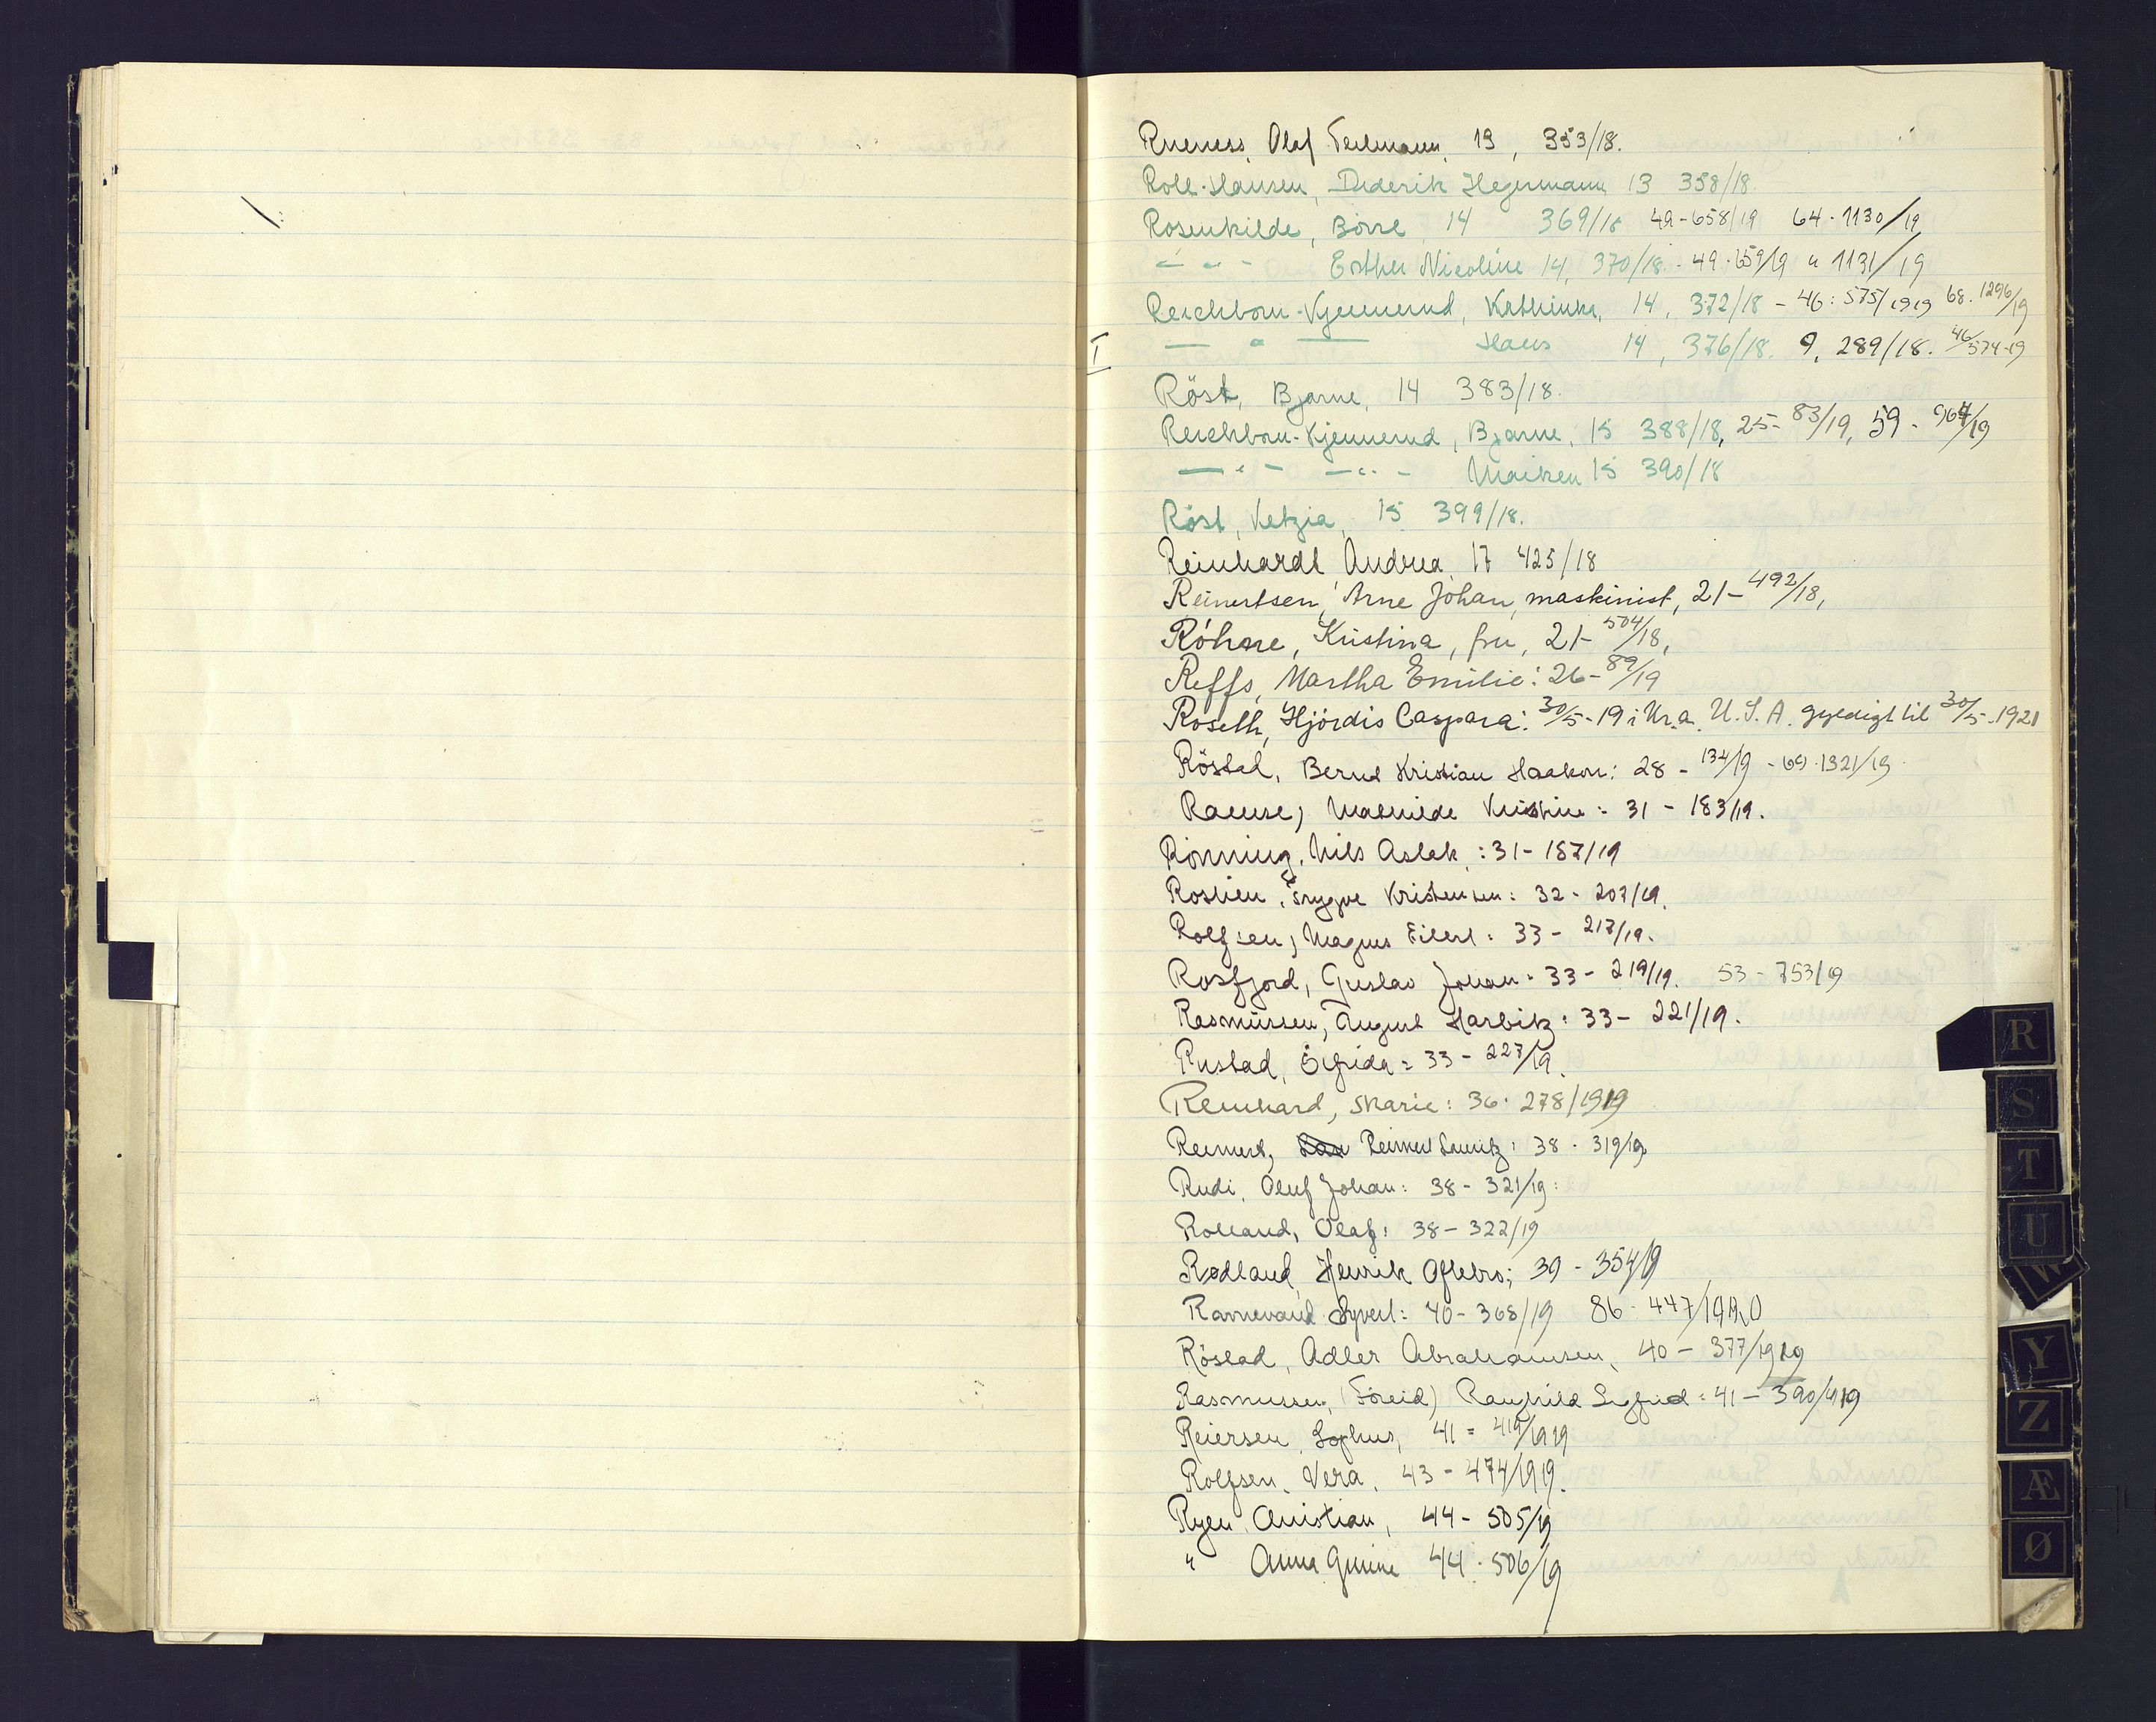 Rueness, Olaf Teilmann, 13, 353/18.
Roll-Hansen, Diderik Hegermann 13 358/18
Rosenkilde, Börre 14 369/18 49-658/19 64-1130/19
— " — Esther Nicoline 14, 370/18. 49-659/19 " 1131/19
Reichborn-Kjennerud, Kathinka, 14, 372/18 - 46: 575/1919 68. 1296/19
— " — Hans 14, 376/18. 9, 289/18. 46/574-19
Röst, Bjarne, 14 383/18.
Reichborn-Kjennerud, Bjarne, 15 388/18, 25- 83/19, 59 - 964/19
— " — — " — Maiken 15 390/18
Röst, Ketzia, 15 399/18.
Reinhardt Andrea, 17 425/18
Reinertsen, Arne Johan, maskinist, 21- 492/18,
Róhne, Kristina, fru, 21- 504/18,
Reffs, Martha Emilie: 26- 89/19
Roseth, Hjördis Caspara: 30/5-19 i Kr.a. U.S.A. gyldigt til 30/5-1921
Röstad, Bernt Kristian Haakon: 28 - 134/19 - 69-1321/19
Raense, Mathilde Kristine: 31 - 183/19.
Rönning, Nils Aslak: 31- 187/19
Roslien, Trygve Kristensen: 32- 207/19.
Rolfsen, Magnus Eilert: 33- 217/19.
Rosfjord, Gustav Johan: 33- 219/19. 53-753/19
Rasmussen, August Harbitz: 33- 221/19.
Rustad, Sigfrida: 33- 227/19.
Reinhard, Marie: 36- 278/1919
Reinert, Reinert Lauritz: 38 - 319/19
Rudi, Oluf Johan: 38- 321/19:
Rolland, Olaf: 38- 322/19
Rødland, Henrik Oftebro; 39 - 354/19
Ramnevand Syvert: 40- 368/19 86- 447/1920
Röstad, Adler Abrahamsen, 40- 377/1919
Rasmussen, (Föreid) Ragnhild Sigfrid: 41- 390/1919
Reiersen, Sophus, 41= 419/1919
Rolfsen, Vera, 43- 474/1919.
Ryen, Christian, 44- 505/19
" Anna Gurine 44- 506/19
R
S
T
U
W
Y
Z
Æ
Ø